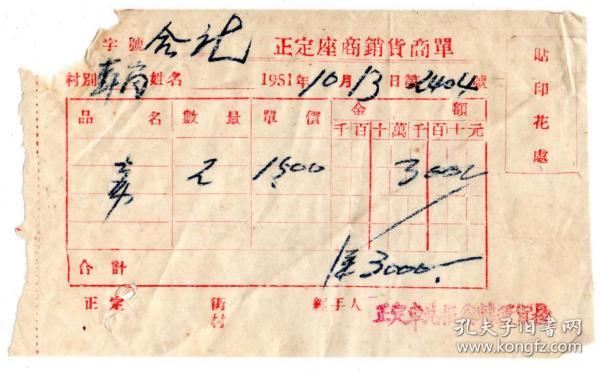 字號 合記 正定座商銷貨商單
村別 姓名 1951年10月13日第2404號
貼印花處
品名 數量 單價 金額
千百十萬千百十元
2 1500 3000
合計 3000
正定 街村 經手人 正定車站
孔夫子旧书网
www.kongfz.com